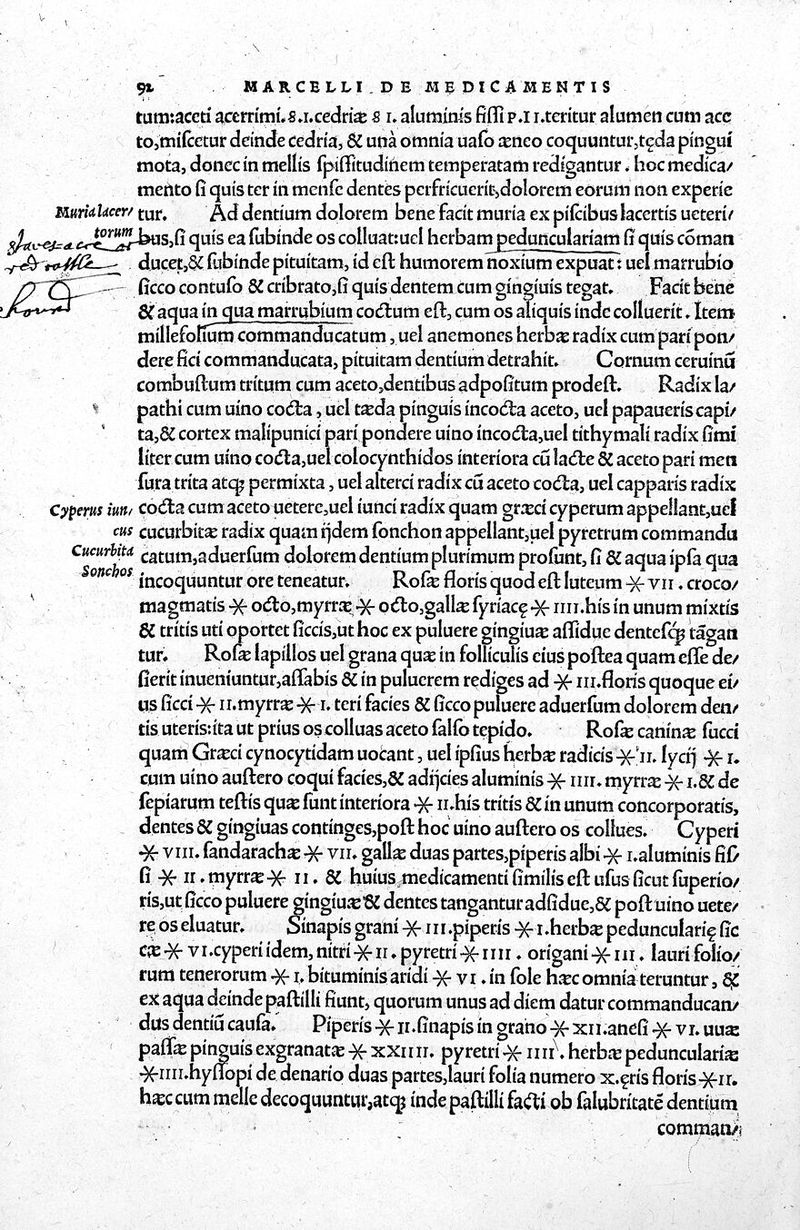 92 MARCELLI DE MEDICAMENTIS
tum:aceti acerrimi.S.I.cedriæ S I. aluminis fissi P.II.teritur alumen cum ace
to,miscetur deinde cedria, & unà omnia uaso æneo coquuntur,tęda pingui
mota, donec in mellis spissitudinem temperatam redigantur . hoc medica/
mento si quis ter in mense dentes perfricuerit,dolorem eorum non experie
Muria lacer/
torum
tur. Ad dentium dolorem bene facit muria ex piscibus lacertis ueteri/
bus,si quis ea subinde os colluat:uel herbam pedunculariam si quis cōman
ducet,& subinde pituitam, id est humorem noxium expuat: uel marrubio
red rattle
sicco contuso & cribrato,si quis dentem cum gingiuis tegat. Facit bene
& aqua in qua marrubium coctum est, cum os aliquis inde colluerit . Item
millefolium commanducatum , uel anemones herbæ radix cum pari pon/
dere fici commanducata, pituitam dentium detrahit. Cornum ceruinū
combustum tritum cum aceto,dentibus adpositum prodest. Radix la/
pathi cum uino cocta , uel tæda pinguis incocta aceto, uel papaueris capi/
ta,& cortex malipunici pari pondere uino incocta,uel tithymali radix simi
liter cum uino cocta,uel colocynthidos interiora cū lacte & aceto pari men
sura trita atq; permixta , uel alterci radix cū aceto cocta, uel capparis radix
Cyperus iun/
cus
cocta cum aceto uetere,uel iunci radix quam græci cyperum appellant,uel
cucurbitæ radix quam ijdem sonchon appellant,uel pyretrum commandu
Cucurbita
Sonchos
catum,aduersum dolorem dentium plurimum prosunt, si & aqua ipsa qua
incoquuntur ore teneatur. Rosæ floris quod est luteum ✶ VII . croco/
magmatis ✶ octo,myrræ ✶ octo,gallæ syriacę ✶ IIII.his in unum mixtis
& tritis uti oportet siccis,ut hoc ex puluere gingiuæ assidue dentesq́; tāgan
tur. Rosæ lapillos uel grana quæ in folliculis eius postea quam esse de/
sierit inueniuntur,assabis & in puluerem rediges ad ✶ III.floris quoque ei/
us sicci ✶ II.myrræ ✶ I. teri facies & sicco puluere aduersum dolorem den/
tis uteris:ita ut prius os colluas aceto salso tepido. Rosæ caninæ succi
quam Græci cynocytidam uocant , uel ipsius herbæ radicis ✶ II. lycij ✶ I.
cum uino austero coqui facies,& adijcies aluminis ✶ IIII. myrræ ✶ I.& de
sepiarum testis quæ sunt interiora ✶ II.his tritis & in unum concorporatis,
dentes & gingiuas continges,post hoc uino austero os collues. Cyperi
✶ VIII. sandarachæ ✶ VII. gallæ duas partes,piperis albi ✶ I.aluminis fis/
si ✶ II . myrræ ✶ II . & huius medicamenti similis est usus sicut superio/
ris,ut sicco puluere gingiuæ & dentes tangantur adsidue,& post uino uete/
re os eluatur. Sinapis grani ✶ III.piperis ✶ I.herbæ peduncularię sic
cæ ✶ VI.cyperi idem, nitri ✶ II. pyretri ✶ IIII . origani ✶ III . lauri folio/
rum tenerorum ✶ I. bituminis aridi ✶ VI . in sole hæc omnia teruntur , &
ex aqua deinde pastilli fiunt, quorum unus ad diem datur commanducan/
dus dentiū causa. Piperis ✶ II.sinapis in grano ✶ XII.anesi ✶ VI. uuæ
passæ pinguis exgranatæ ✶ XXIIII. pyretri ✶ IIII . herbæ peduncularιæ
✶ IIII.hyssopi de denario duas partes,lauri folia numero X.ęris floris ✶ II.
hæc cum melle decoquuntur,atq; inde pastilli facti ob salubritatē dentium
comman/